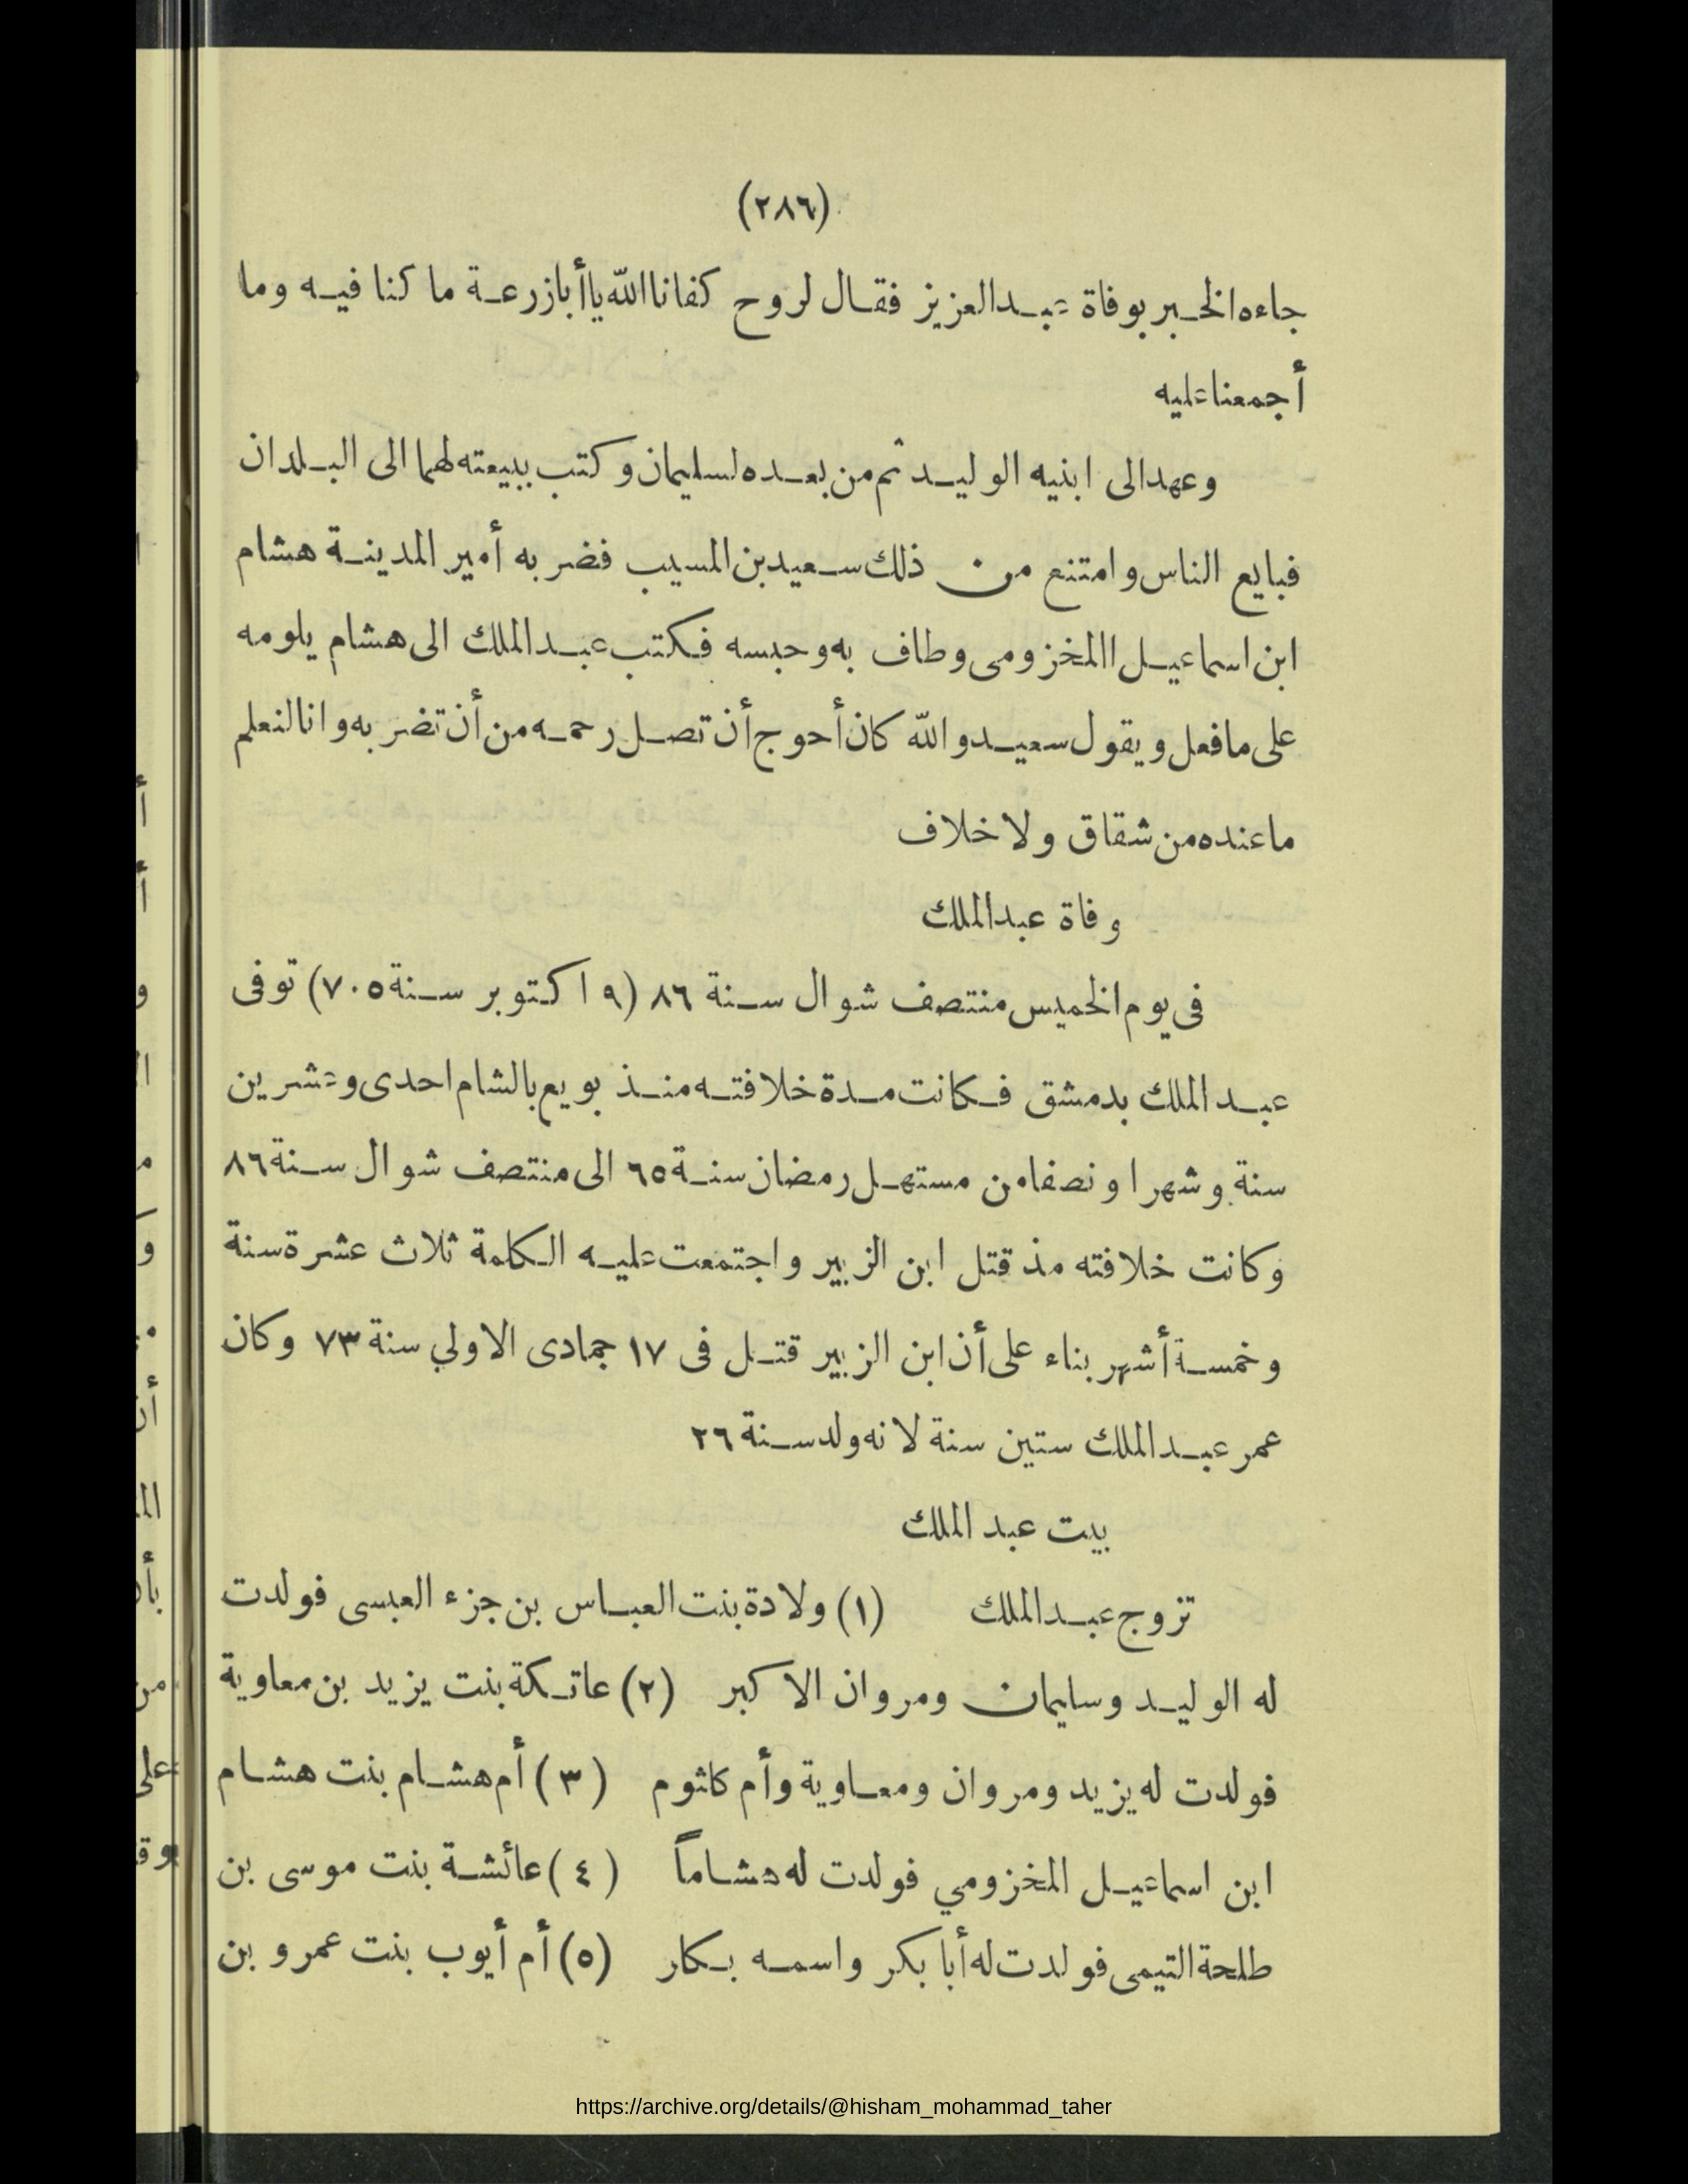 (٢٨٦)
جاءه الخبر بوفاة عبد العزيز فقال لروح كفانا الله يا أبا زرعة ما كنا فيه وما
أجمعنا عليه
وعهد الى ابنيه الوليد ثم من بعده لسليمان وكتب ببيعته لهما الى البلدان
فبايع الناس وامتنع من ذلك سعيد بن المسيب فضربه أمير المدينة هشام
ابن اسماعيل االمخزومى وطاف به وحبسه فكتب عبد الملك الى هشام يلومه
على ما فعل ويقول سعيد والله كان أحوج أن تصل رحمه من أن تضربه وانا لنعلم
ما عنده من شقاق ولا خلاف
وفاة عبد الملك
فى يوم الخميس منتصف شوال سنة ٨٦ (٩ اكتوبر سنة ٧٠٥) توفى
عبد الملك بدمشق فكانت مدة خلافته منذ بويع بالشام احدى وعشرين
سنة وشهرا ونصفا من مستهل رمضان سنة ٦٥ الى منتصف شوال سنة ٨٦
وكانت خلافته مذ قتل ابن الزبير واجتمعت عليه الكلمة ثلاث عشرة سنة
وخمسة أشهر بناء على أن ابن الزبير قتل فى ١٧ جمادى الاولي سنة ٧٣ وكان
عمر عبد الملك ستين سنة لانه ولد سنة ٢٦
بيت عبد الملك
تزوج عبد الملك (١) ولادة بنت العباس بن جزء العبسى فولدت
له الوليد وسليمان ومروان الاكبر (٢) عاتكة بنت يزيد بن معاوية
فولدت له يزيد ومروان ومعاوية وأم كلثوم (٣) أم هشام بنت هشام
ابن اسماعيل المخزومي فولدت له هشاماً (٤) عائشة بنت موسى بن
طلحة التيمى فولدت له أبا بكر واسمه بكار (٥) أم أيوب بنت عمرو بن
https://archive.org/details/@hisham_mohammad_taher